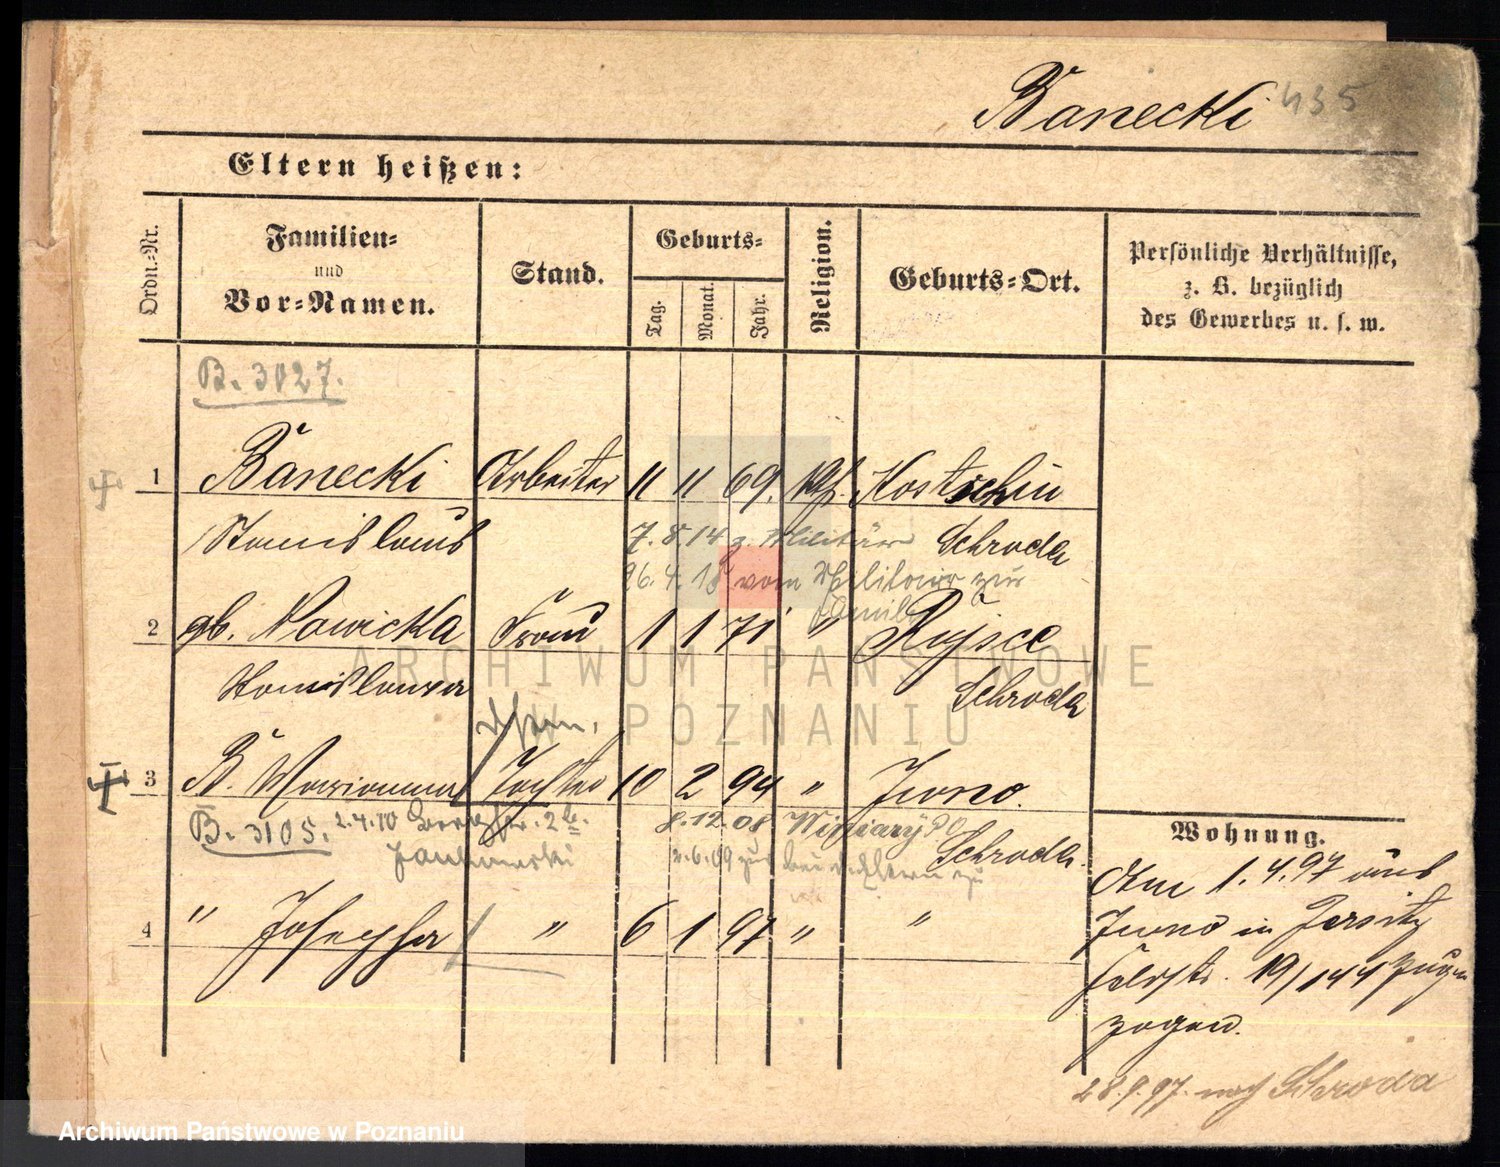 Banecki 435
Eltern heißen:
Ordn.-Nr.
Familien-
und
Vor-Namen.
Stand.
Geburts-
Tag.
Monat.
Jahr.
Religion.
Geburts-Ort.
Persönliche Verhältnisse,
z. B. bezüglich
des Gewerbes u. s. w.
B. 3027.
1 Banecki Arbeiter 11 11 69. Kostschin
Stanislaus Schroda
7.8.14 z. Militär
26.4.18 vom Militär zur
Familie
2 gb. Nowicka Frau 1 1 71 " Rujsce
Stanislawa Schroda
3 B. Marianna Tochter 10 2 94 " Iwno.
B. 3105. 2.4.10
8.12.08 Winiary 90
Schroda.
2.6.09 zu
4 " Josepha " 6 1 97 " "
Wohnung.
Am 1.4.97 aus
Iwno in Jersitz
Feldstr. 19/144 zuge
zogen.
28.9.97. nach Schroda
ARCHIWUM PAŃSTWOWE
W POZNANIU
Archiwum Państwowe w Poznaniu